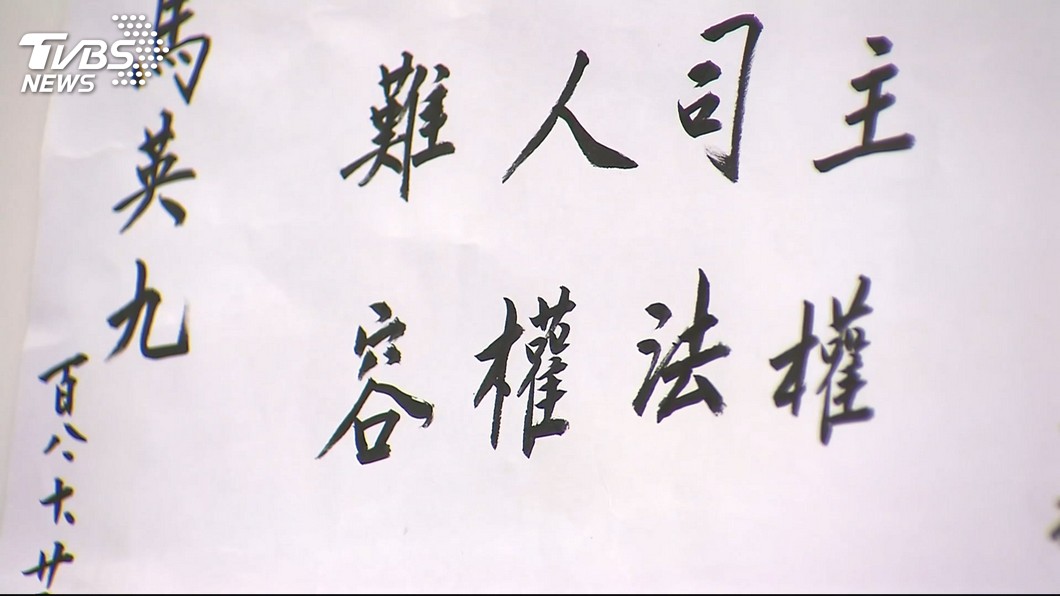 TVBS
NEWS
主權
司法
人權
難容
馬英九
百八十廿